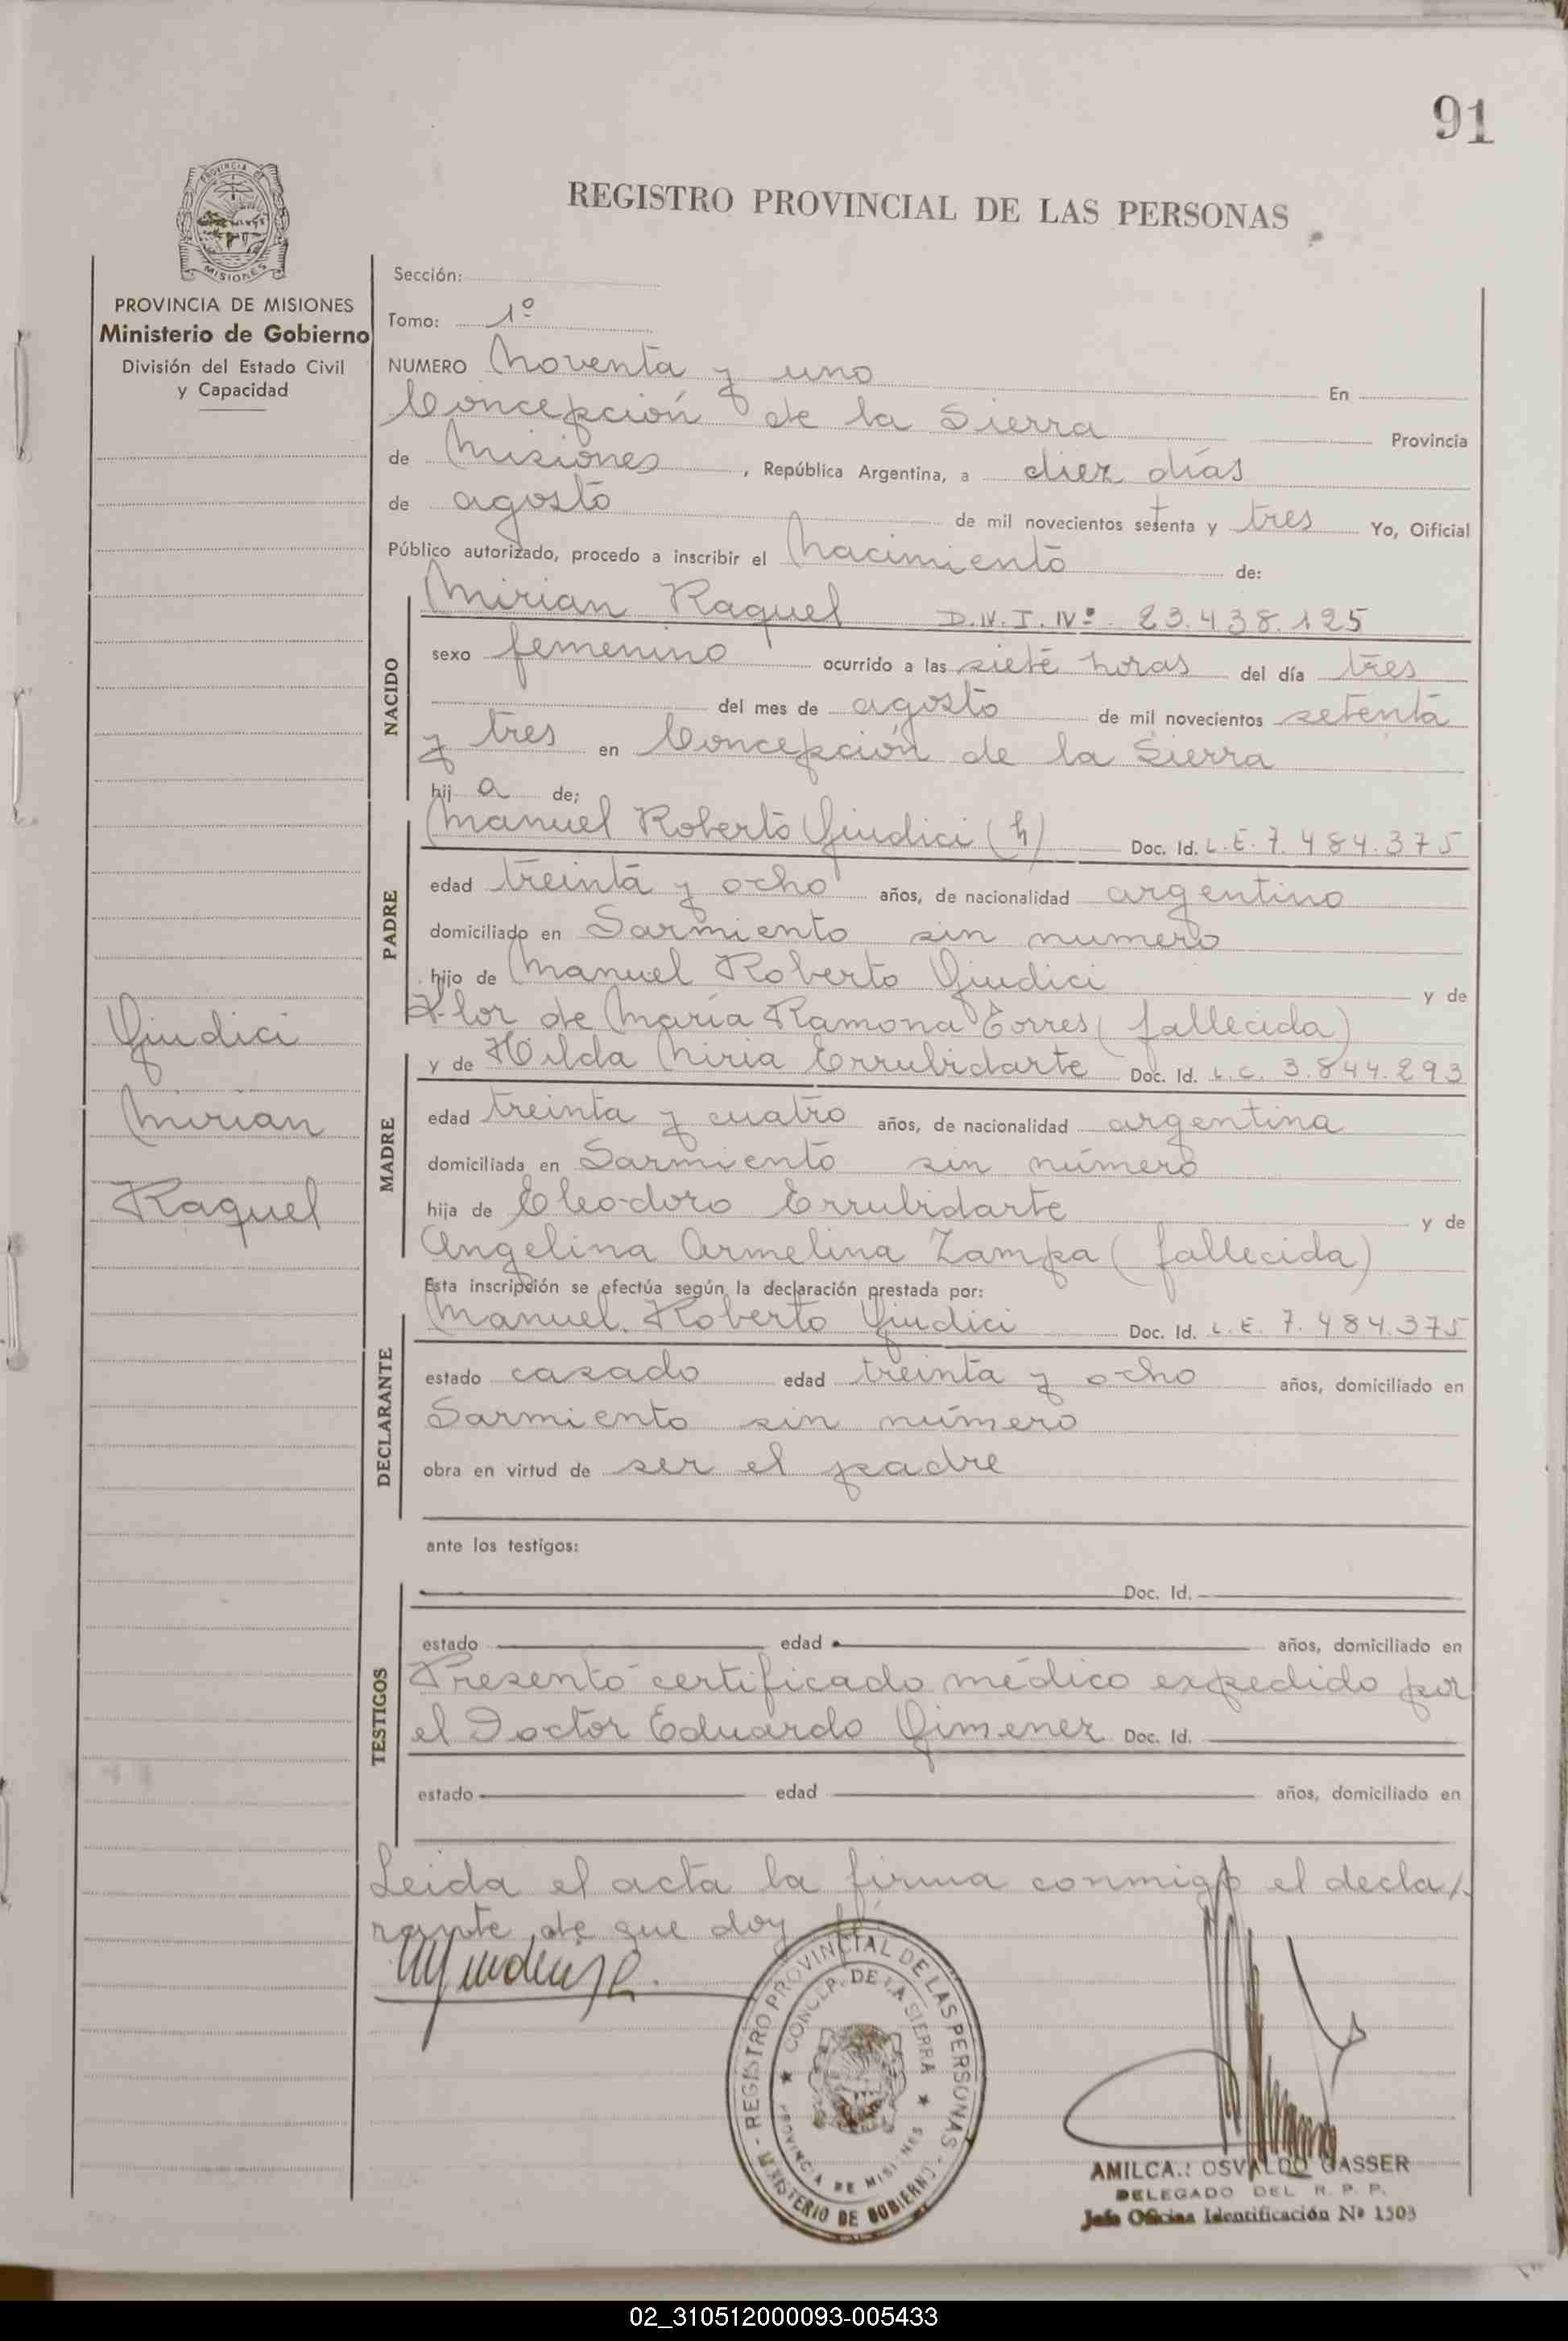 91
REGISTRO PROVINCIAL DE LAS PERSONAS
PROVINCIA DE
MISIONES
PROVINCIA DE MISIONES
Ministerio de Gobierno
División del Estado Civil
y Capacidad
Sección:
Tomo: 1º
NUMERO Noventa y uno En
Concepción de la Sierra Provincia
de Misiones, República Argentina, a diez días
de agosto de mil novecientos setenta y tres Yo, Oificial
Público autorizado, procedo a inscribir el Nacimiento de:
NACIDO
Mirian Raquel D.N.I. Nº 23.438.125
sexo femenino ocurrido a las siete horas del día tres
del mes de agosto de mil novecientos setenta
y tres en Concepción de la Sierra
hij a de:
PADRE
Manuel Roberto Giudici (h) Doc. Id. L.E. 7.484.375
edad treinta y ocho años, de nacionalidad argentino
domiciliado en Sarmiento sin numero
hijo de Manuel Roberto Giudici y de
Flor de María Ramona Torres (fallecida)
Giudici
Mirian
Raquel
MADRE
y de Hilda Niria Errubidarte Doc. Id. L.C. 3.844.293
edad treinta y cuatro años, de nacionalidad argentina
domiciliada en Sarmiento sin número
hija de Eleodoro Errubidarte y de
Angelina Armelina Zampa (fallecida)
Esta inscripción se efectúa según la declaración prestada por:
DECLARANTE
Manuel Roberto Giudici Doc. Id. L.E. 7.484.375
estado casado edad treinta y ocho años, domiciliado en
Sarmiento sin número
obra en virtud de ser el padre
ante los testigos:
TESTIGOS
Doc. Id.
estado edad años, domiciliado en
Presentó certificado médico expedido por
el Doctor Eduardo Gimenez Doc. Id.
estado edad años, domiciliado en
Leida el acta la firma conmigo el decla/
rante de que doy fé
REGISTRO PROVINCIAL DE LAS PERSONAS
CONCEP. DE LA SIERRA
PROVINCIA DE MISIONES
MINISTERIO DE GOBIERNO
AMILCA.: OSVALDO GASSER
DELEGADO DEL R. P. P.
Jefe Oficina Identificación Nº 1503
02_310512000093-005433